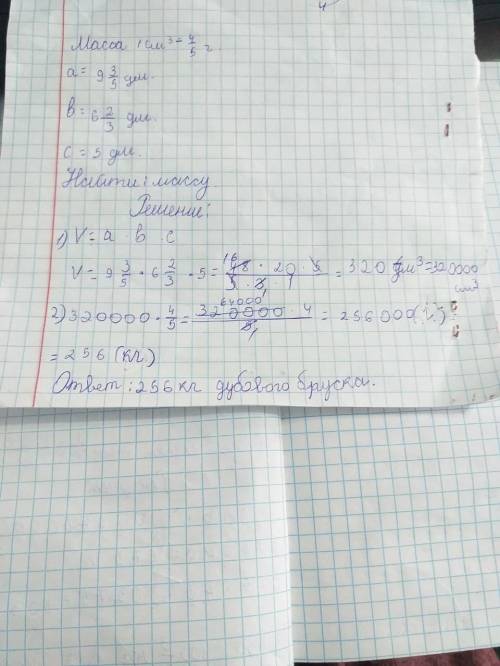 Масса 1 см³ = 4/5 г
a = 9 3/5 дм.
в = 6 2/3 дм.
c = 5 дм.
Найти: массу
Решение:
1) V = a в c
V = 9 3/5 · 6 2/3 · 5 = 16 48 · 20 · 5 / 5 · 3, · 1 = 320 дм³ = 320000 см³
2) 320000 · 4/5 = 64000 320000 · 4 / 5, = 256000 (г) =
= 256 (кг)
Ответ: 256 кг дубового бруска.